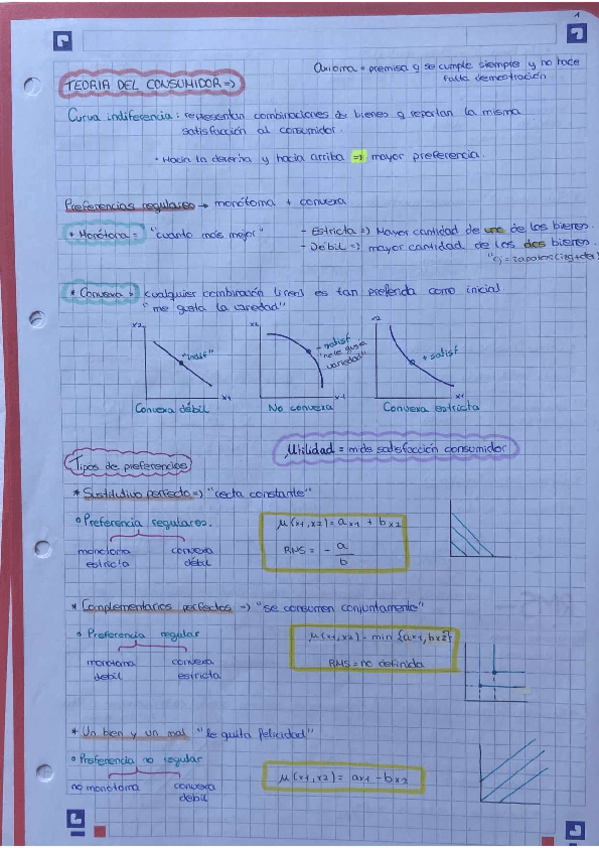 1
Axioma = premisa q se cumple siempre y no hace
falta demostración
TEORIA DEL CONSUMIDOR =>
Curva indiferencia: representan combinaciones de bienes q reportan la misma
satisfacción al consumidor.
• Hacia la derecha y hacia arriba => mayor preferencia.
Preferencias regulares → monótoma + convexa
• Monótona = "cuanto más mejor"
- Estricta => Mayor cantidad de uno de los bienes.
- Débil => mayor cantidad de los dos bienes.
"ej = zapatos (izq+der)
• Convexa → cualquier combinación lineal es tan preferida como inicial
"me gusta la variedad"
x2
"indif"
x1
Convexa débil
x2
- satisf
"no le gusta
variedad"
x1
No convexa
x2
+ satisf
x1
Convexa estricta
Utilidad = mide satisfacción consumidor
Tipos de preferencias
* Sustitutivo perfecto => "recta constante"
• Preferencia regulares.
monotona
estricta
convexa
débil
μ(x1,x2) = ax1 + bx2
RMS = - a
b
* Complementarios perfectos → "se consumen conjuntamente"
• Preferencia regular
monotoma
debil
convexa
estricta
μ(x1,x2) = min {ax1, bx2}
RMS = no definida
* Un bien y un mal "le quita felicidad"
• Preferencia no regular
no monotoma
convexa
débil
μ(x1,x2) = ax1 - bx2